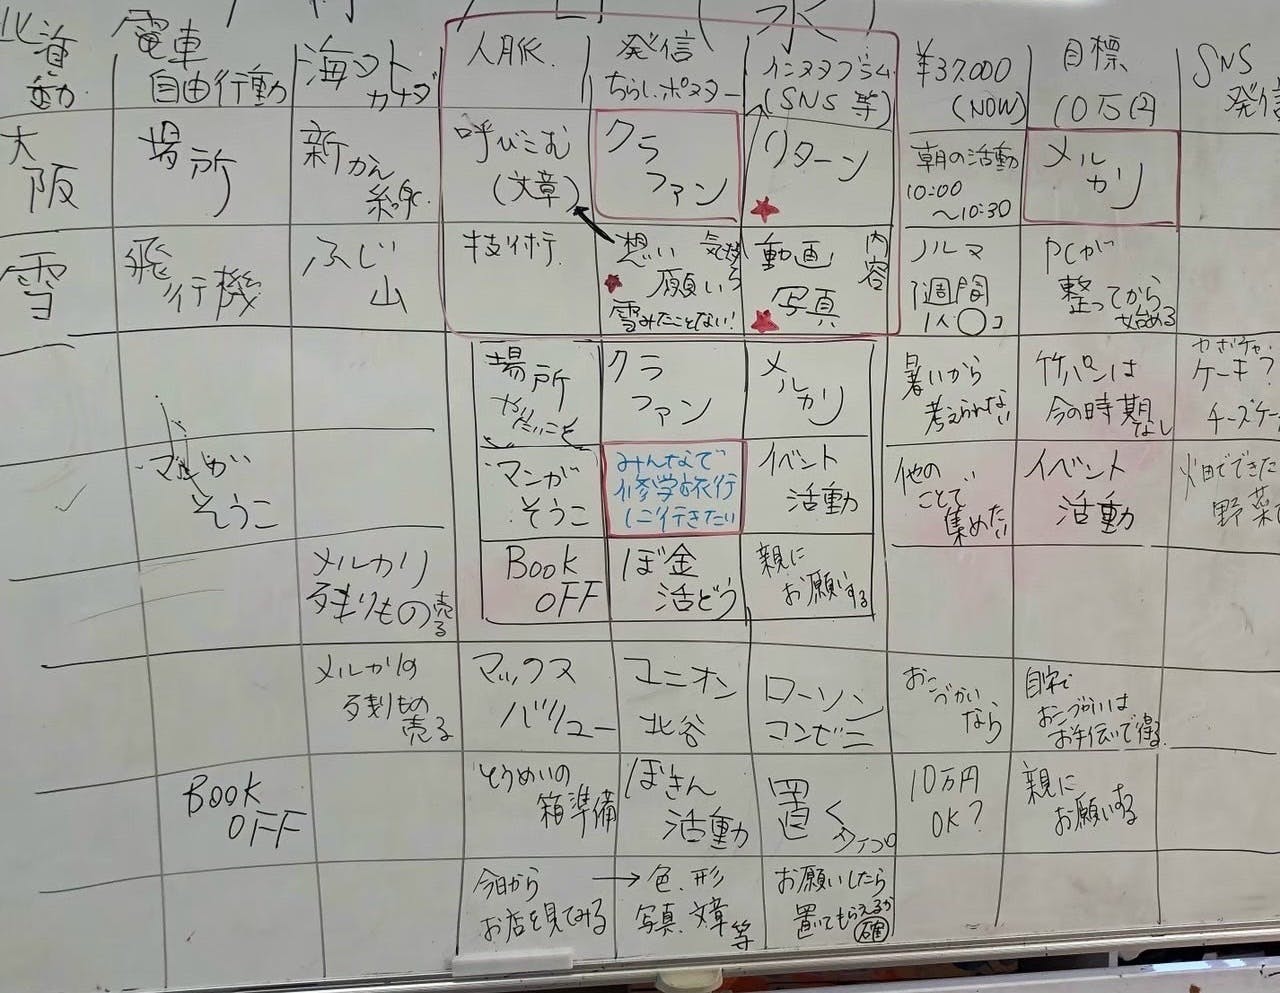 電車
自由行動
海外
カナダ
人脈
発信
ちらし.ポスター
インスタグラム
(SNS 等)
¥37.000
(NOW)
目標
10万円
SNS
発信
大
阪
場所
新かん
線
呼びこむ
(文章)
クラ
ファン
リターン
朝の活動
10:00
〜10:30
メル
カリ
雪
飛
行機
ふじ
山
技術
想い 気持ち
願い
雪みたことない!
動画
写真
内容
ノルマ
1週間
1人〇コ
PCが
整ってから
始める
場所
クラ
ファン
メル
カリ
暑いから
考えられない
竹パンは
今の時期
なし
カボチャ
ケーキ?
チーズケー
マンガ
そうこ
マンガ
そうこ
みんなで
修学旅行
に行きたい
イベント
活動
他の
ことで
集めたい
イベント
活動
畑でできた
野菜
メルカリ
残りもの売る
BOOK
OFF
ぼ金
活どう
親に
お願いする
メルカリの
残りもの
売る
マックス
バリュー
ユニオン
北谷
ローソン
コンビニ
おこづかい
なら
自宅で
おこづかいは
お手伝いで得る
BOOK
OFF
とうめいの
箱準備
ぼきん
活動
置く
10万円
OK?
親に
お願いする
今日から
お店を見てみる
→ 色.形
写真.文章 等
お願いしたら
置いてもらえるか
確